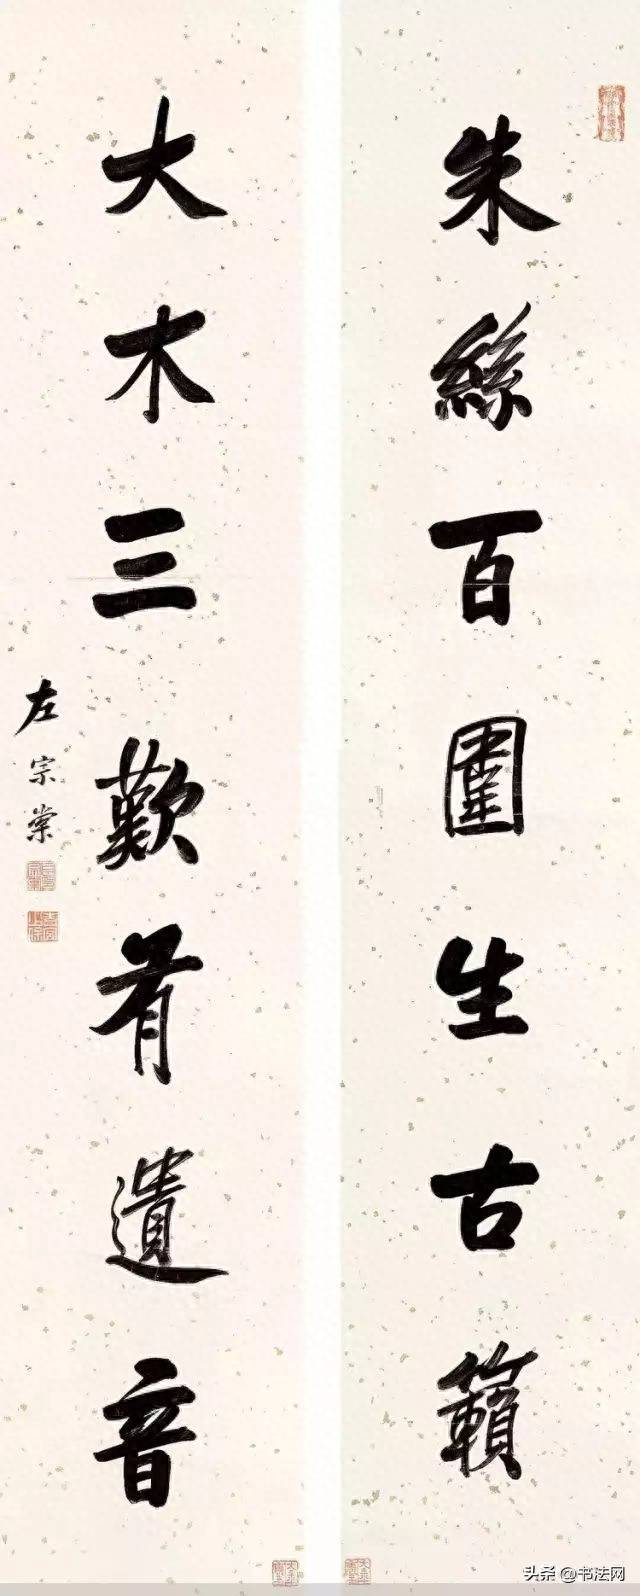 朱絲百圍生古籟
大木三歎有遺音
左宗棠
头条 @书法网